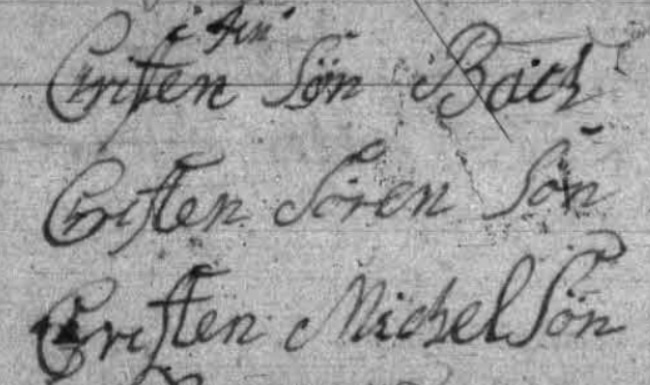 Cristen Søn Bach
Cristen Sören Sön
Cristen Michel Sön